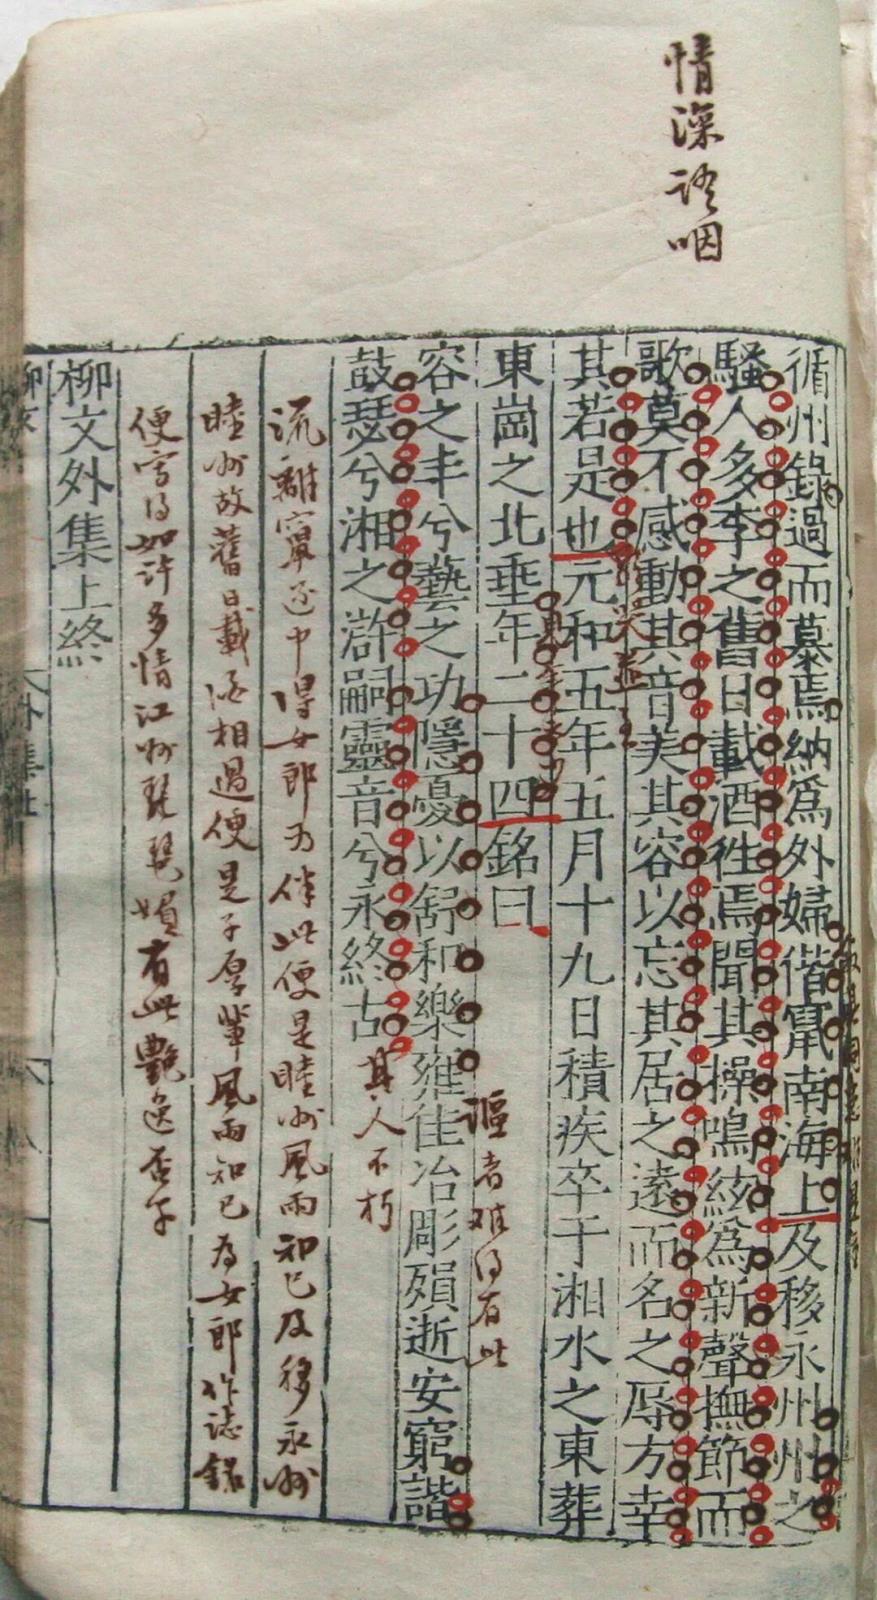 情深語咽
循州錄過而慕焉納爲外婦偕竄南海上及移永州州之
騷人多李之舊日載酒往焉聞其操鳴絃爲新聲撫節而
歌莫不感動其音美其容以忘其居之遠而名之辱方幸
其若是也元和五年五月十九日積疾卒于湘水之東葬
東崗之北垂年二十四銘曰
容之丰兮藝之功隱憂以舒和樂雍佳冶彫殞逝安窮諧
謳者難得有此
鼓瑟兮湘之滸嗣靈音兮永終古
其人不朽
流離竄逐中得女郎爲伴此便是睦州風雨知已及移永州
睦州故舊日載酒相過便是子厚輩風雨知已爲女郎作誌銘
便寫得如許多情江州琵琶婦有此艷逸否乎
柳文外集上終